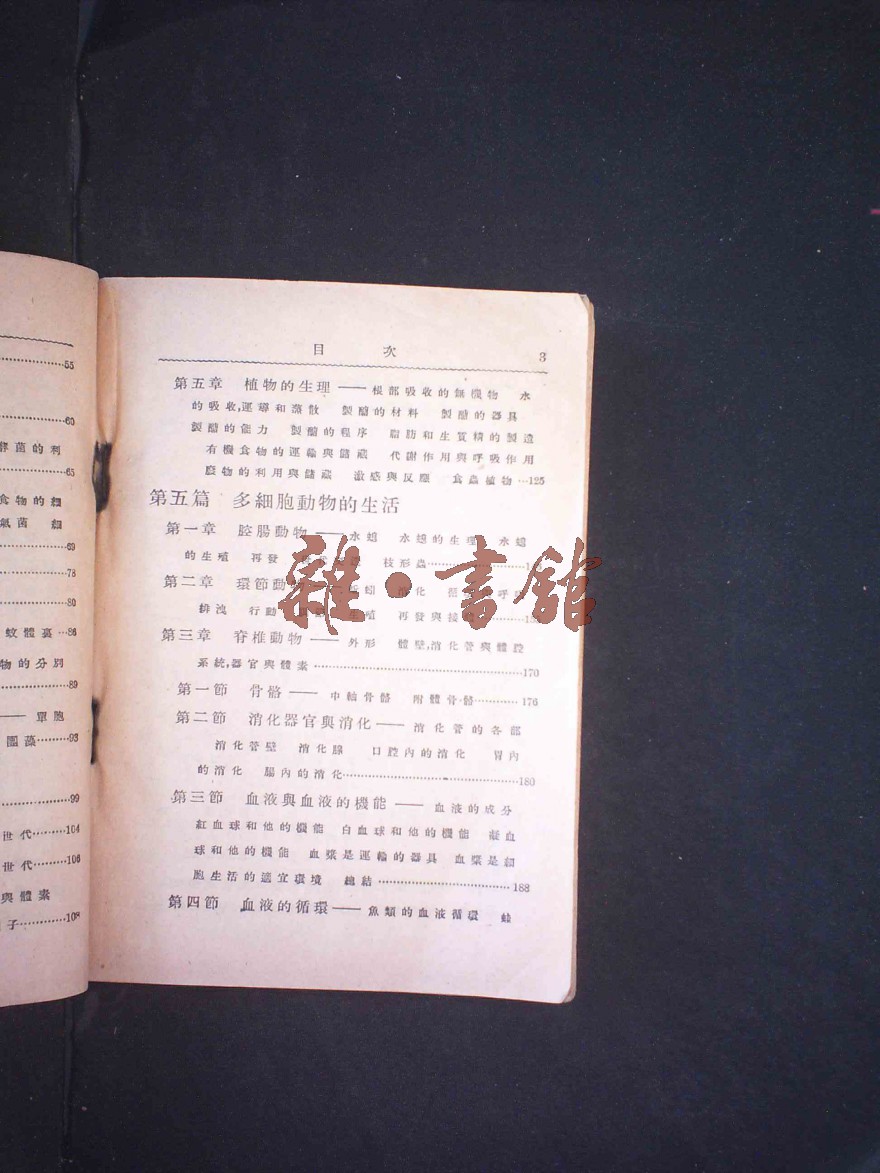 55
60
菌的利
65
食物的細
氣菌 細
69
78
80
蚊體裏…86
物的分別
89
——單胞
團藻………93
99
世代………104
世代………106
與體素
子…………108
目 次 3
第五章 植物的生理——根部吸收的無機物 水
的吸收,運導和蒸散 製醣的材料 製醣的器具
製醣的能力 製醣的程序 脂肪和生質精的製造
有機食物的運輸與儲藏 代謝作用與呼吸作用
廢物的利用與儲藏 激感與反應 食蟲植物…125
第五篇 多細胞動物的生活
第一章 腔腸動物——水螅 水螅的生理 水螅
的生殖 再發 枝形蟲
第二章 環節動物——蚯蚓 消化
排洩 行動 生殖 再發與接
第三章 脊椎動物——外形 體壁,消化管與體腔
系統,器官與體素…170
第一節 骨骼——中軸骨骼 附體骨骼…176
第二節 消化器官與消化——消化管的各部
消化管壁 消化腺 口腔內的消化 胃內
的消化 腸內的消化…180
第三節 血液與血液的機能——血液的成分
紅血球和他的機能 白血球和他的機能 凝血
球和他的機能 血漿是運輸的器具 血漿是細
胞生活的適宜環境 總結…188
第四節 血液的循環——魚類的血液循環 蛙
雜·書館